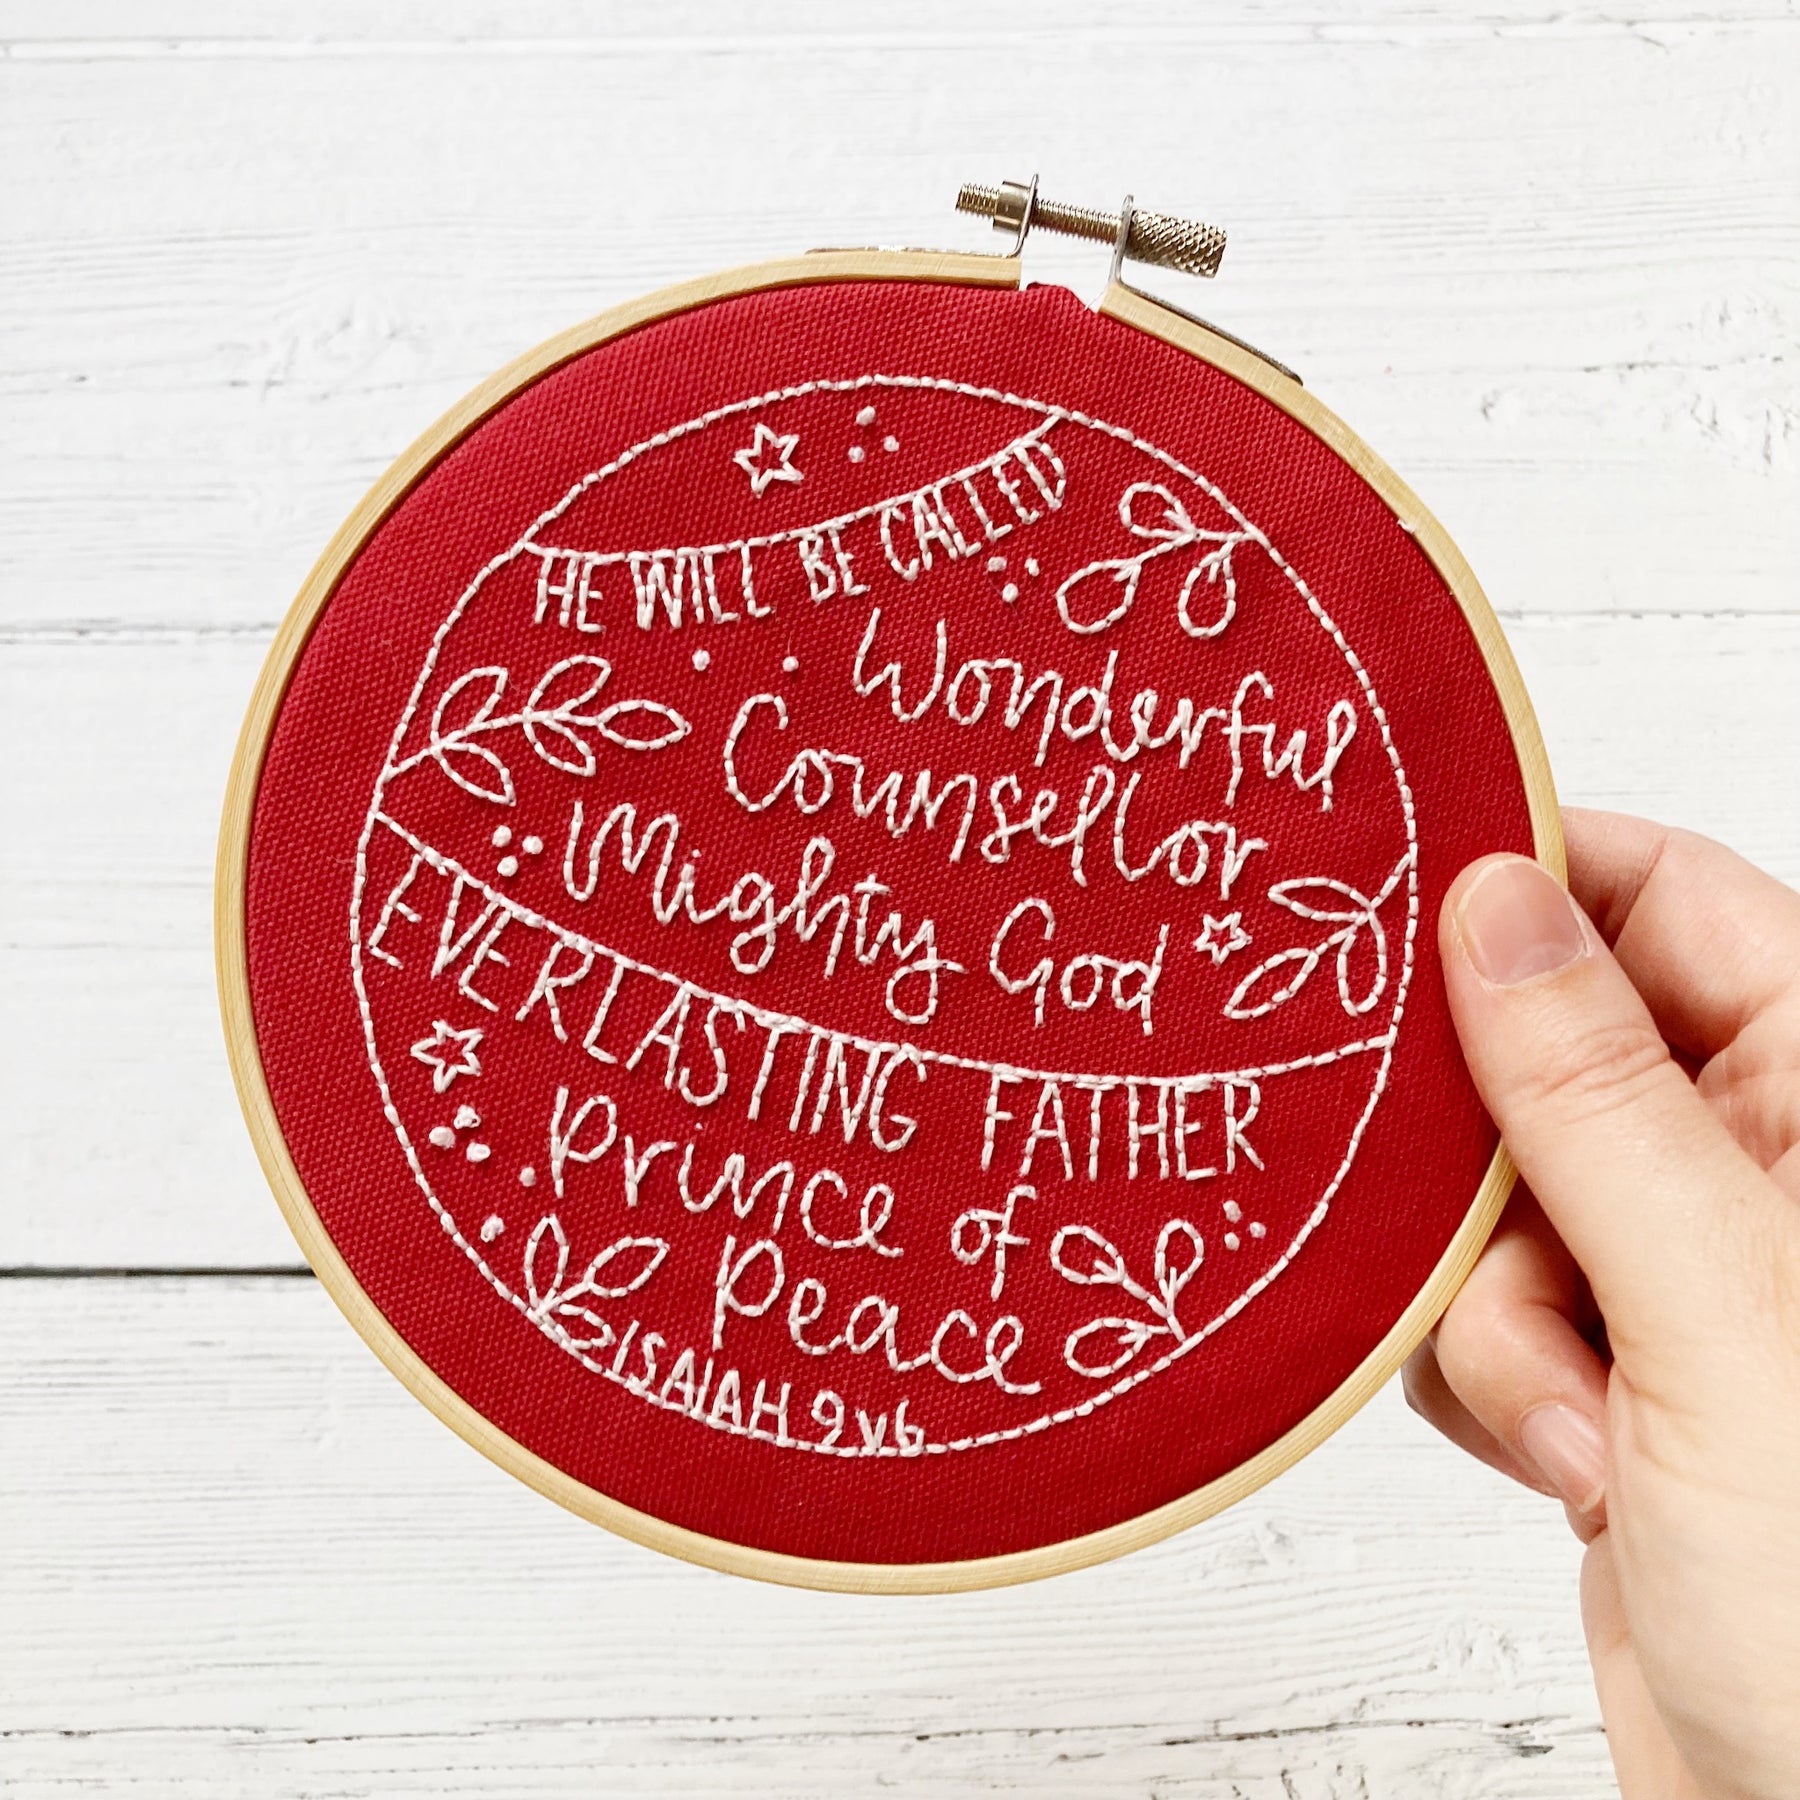 HE WILL BE CALLED
Wonderful
Counsellor
Mighty God
EVERLASTING FATHER
Prince of
Peace
ISAIAH 9 v6